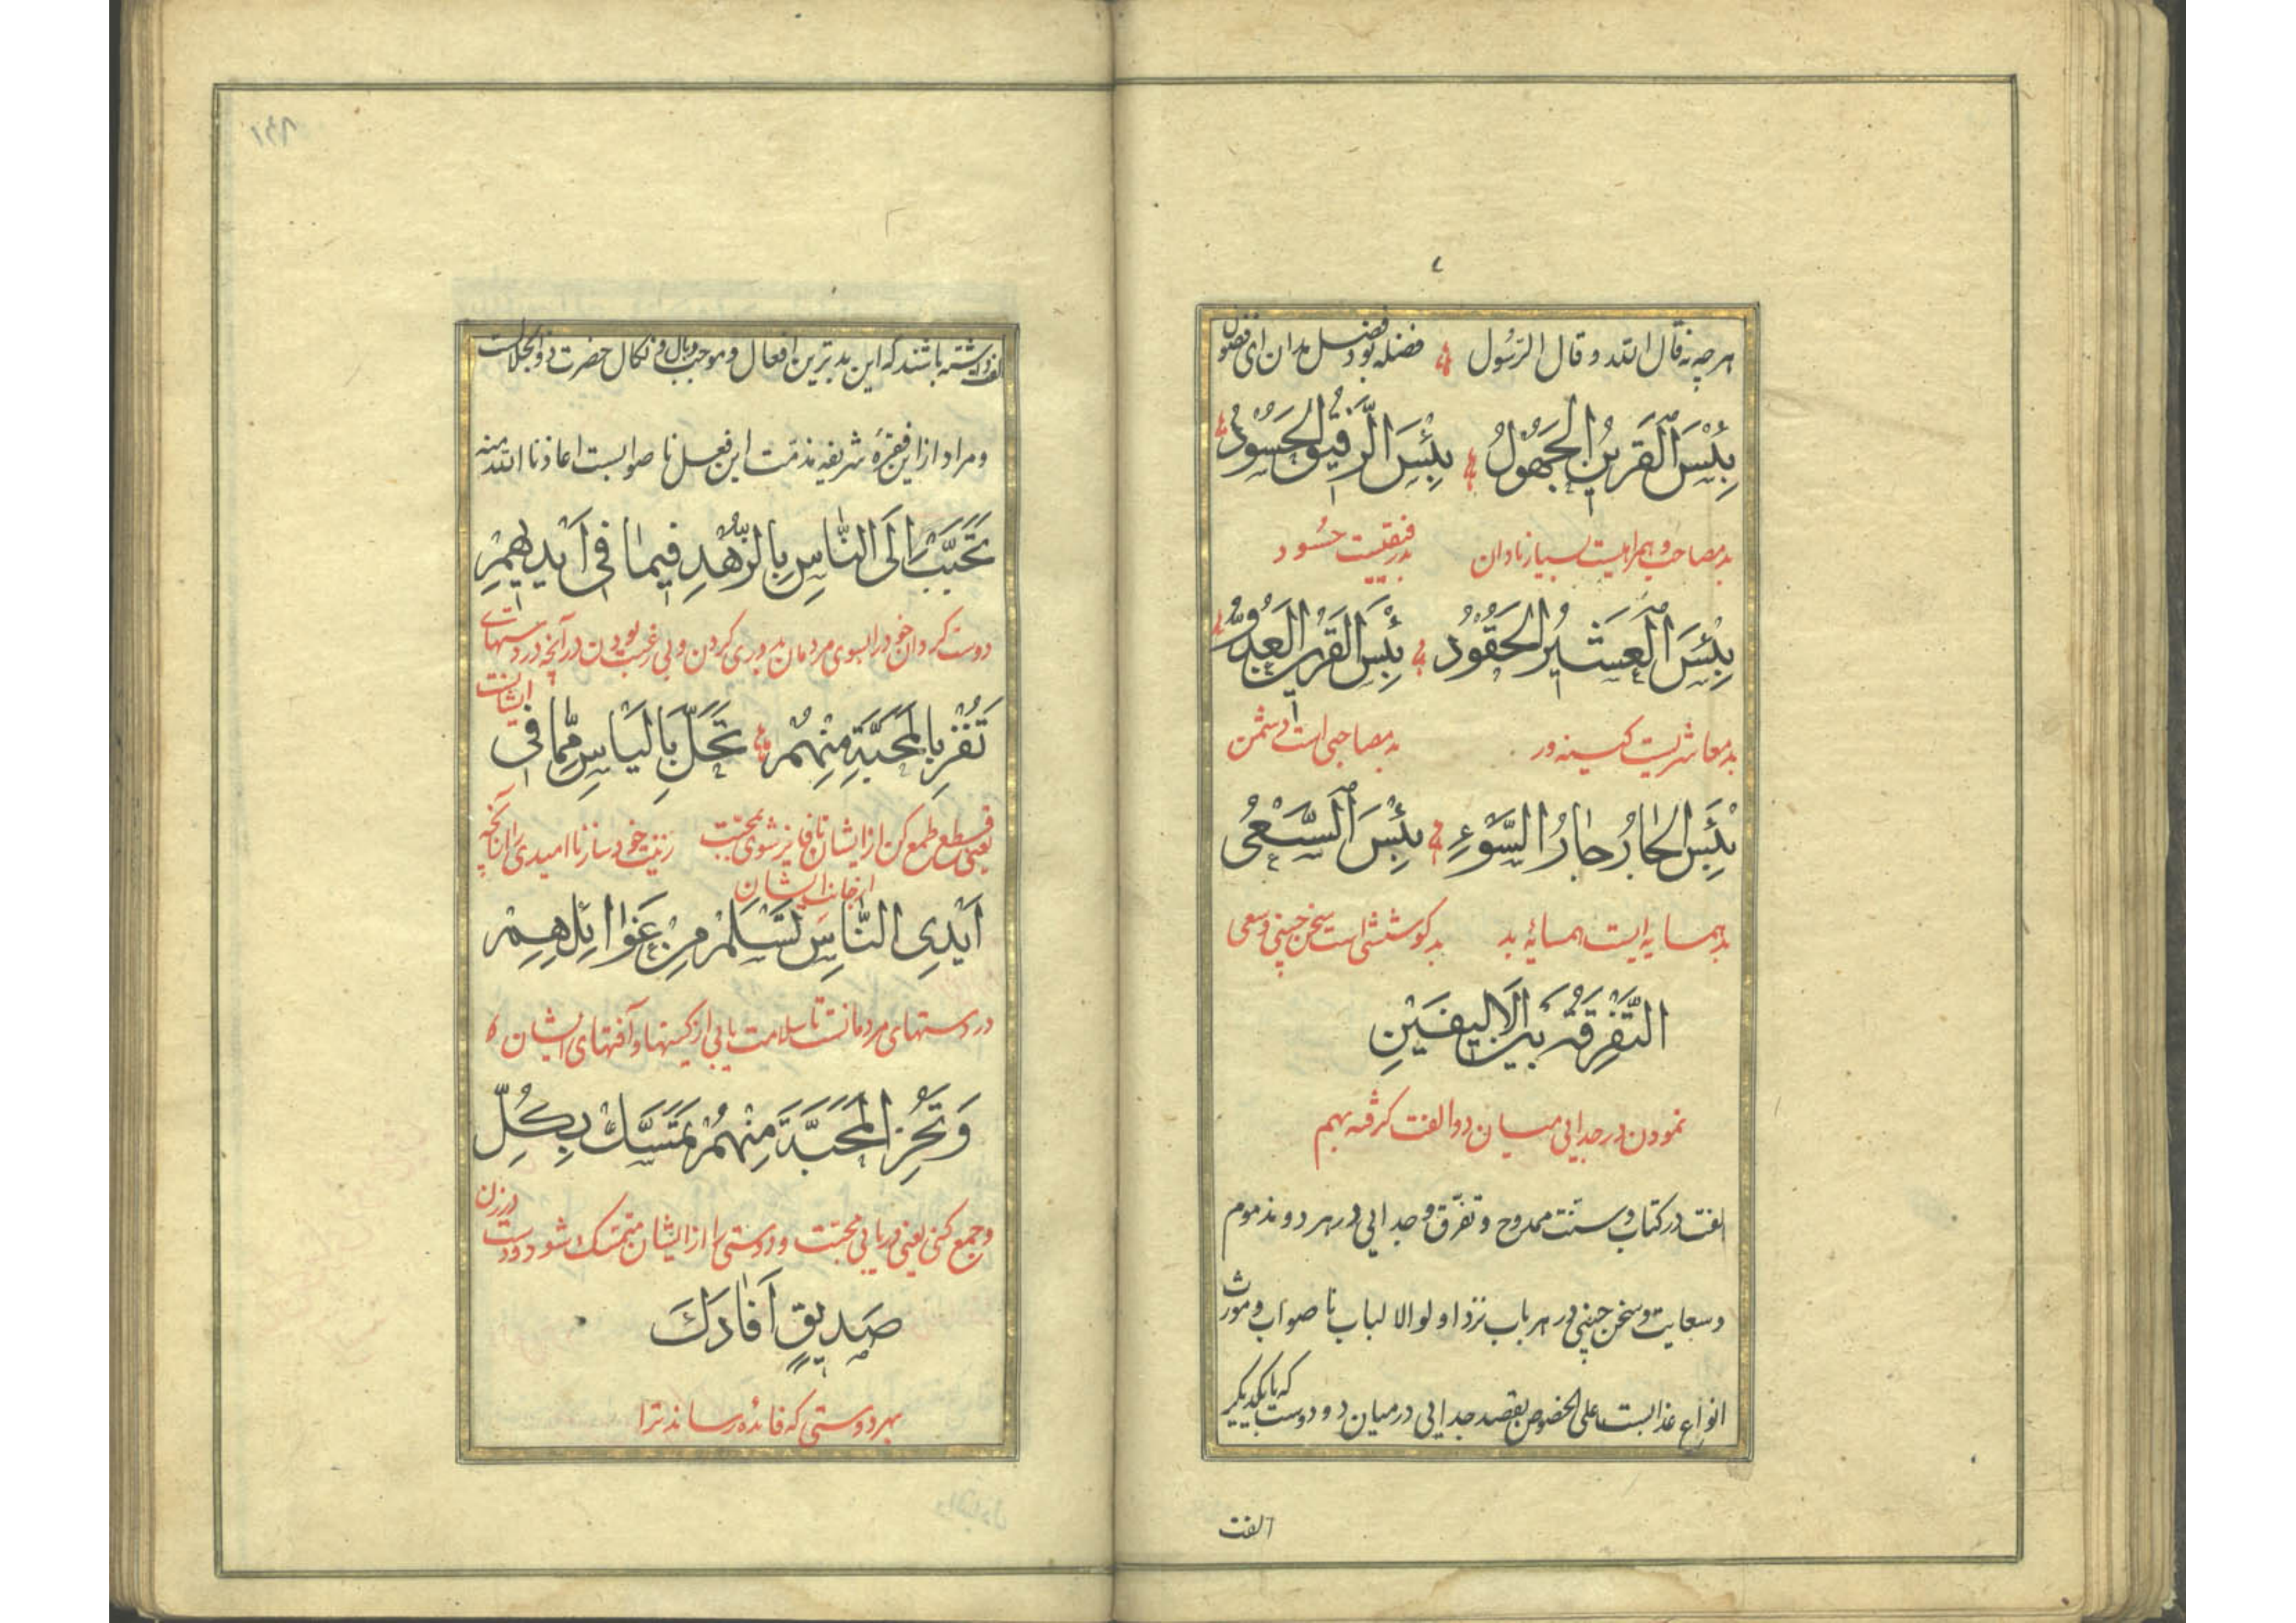 هر چه نه قال الله و قال الرسول فضله بود فضل مدان ای فضول
بِئْسَ الْقَرِينُ الْجَهُولُ بِئْسَ الرَّفِيقُ الْحَسُودُ
بد مصاحب و همراهیست بسیار نادان بد رفیقیست حسود
بِئْسَ الْعَشِيرُ الْحَقُودُ بِئْسَ الْقَرِينُ الْعَدُوُّ
بد معاشریست کینه ور بد مصاحبی است دشمن
بِئْسَ الْجَارُ جَارُ السَّوْءِ بِئْسَ السَّعْیُ
بد همسایه ایست همسایهٔ بد بد کوششی است سخن چینی و سعی
التَّفْرِقَةُ بَيْنَ الْاَلِيفَيْنِ
نمودن در جدایی میان دو الفت گرفته بهم
الفت در کتاب و سنت ممدوح و تفرق و جدایی در هر دو مذموم
و سعایت و سخن چینی در هر باب نزد اولوالالباب نا صواب و مورث
انواع عذابست علی الخصوص بقصد جدایی در میان دو دوست که با یکدیگر
الفت
الفت داشته باشند که این بدترین افعال و موجب وبال و نکال حضرت ذوالجلالست
و مراد از این فقرهٔ شریفه مذمت این فعل نا صوابست اعاذنا الله منه
تَحَبَّبْ اِلَى النَّاسِ بِالزُّهْدِ فِيمَا فِى اَيْدِيهِمْ
دوست گردان خود را بسوی مردمان بدوری کردن و بی رغبت بودن در آنچه در دستهای
ایشانست
تَفُزْ بِالْمَحَبَّةِ مِنْهُمْ تَحَلَّ بِالْيَاسِ مِمَّا فِى
یعنی قطع طمع کن از ایشان تا فایز شوی بمحبت زینت خود ساز نا امیدی را از آنچه
از جانب ایشان
اَيْدِى النَّاسِ تَسْلَمْ مِنْ غَوَائِلِهِمْ
در دستهای مردمانست تا سلامت یابی از کینها و آفتهای ایشان
وَ تَحُزِ الْمَحَبَّةَ مِنْهُمْ تَمَسَّكْ بِكُلِّ
و جمع کنی یعنی دریابی محبت و دوستی را از ایشان متمسک شو و دست
در زن
صَدِيقٍ اَفَادَكَ
بهر دوستی که فائده رساند ترا